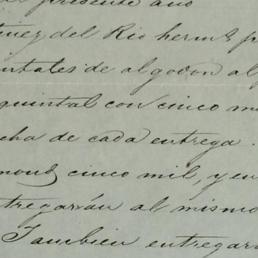 del presente año
tinez del Rio herms p
intales de algodon al p
quintal con cinco me
cha de cada entrega.
mont cinco mil, y en
tregarán al mismo
Tambien entregar